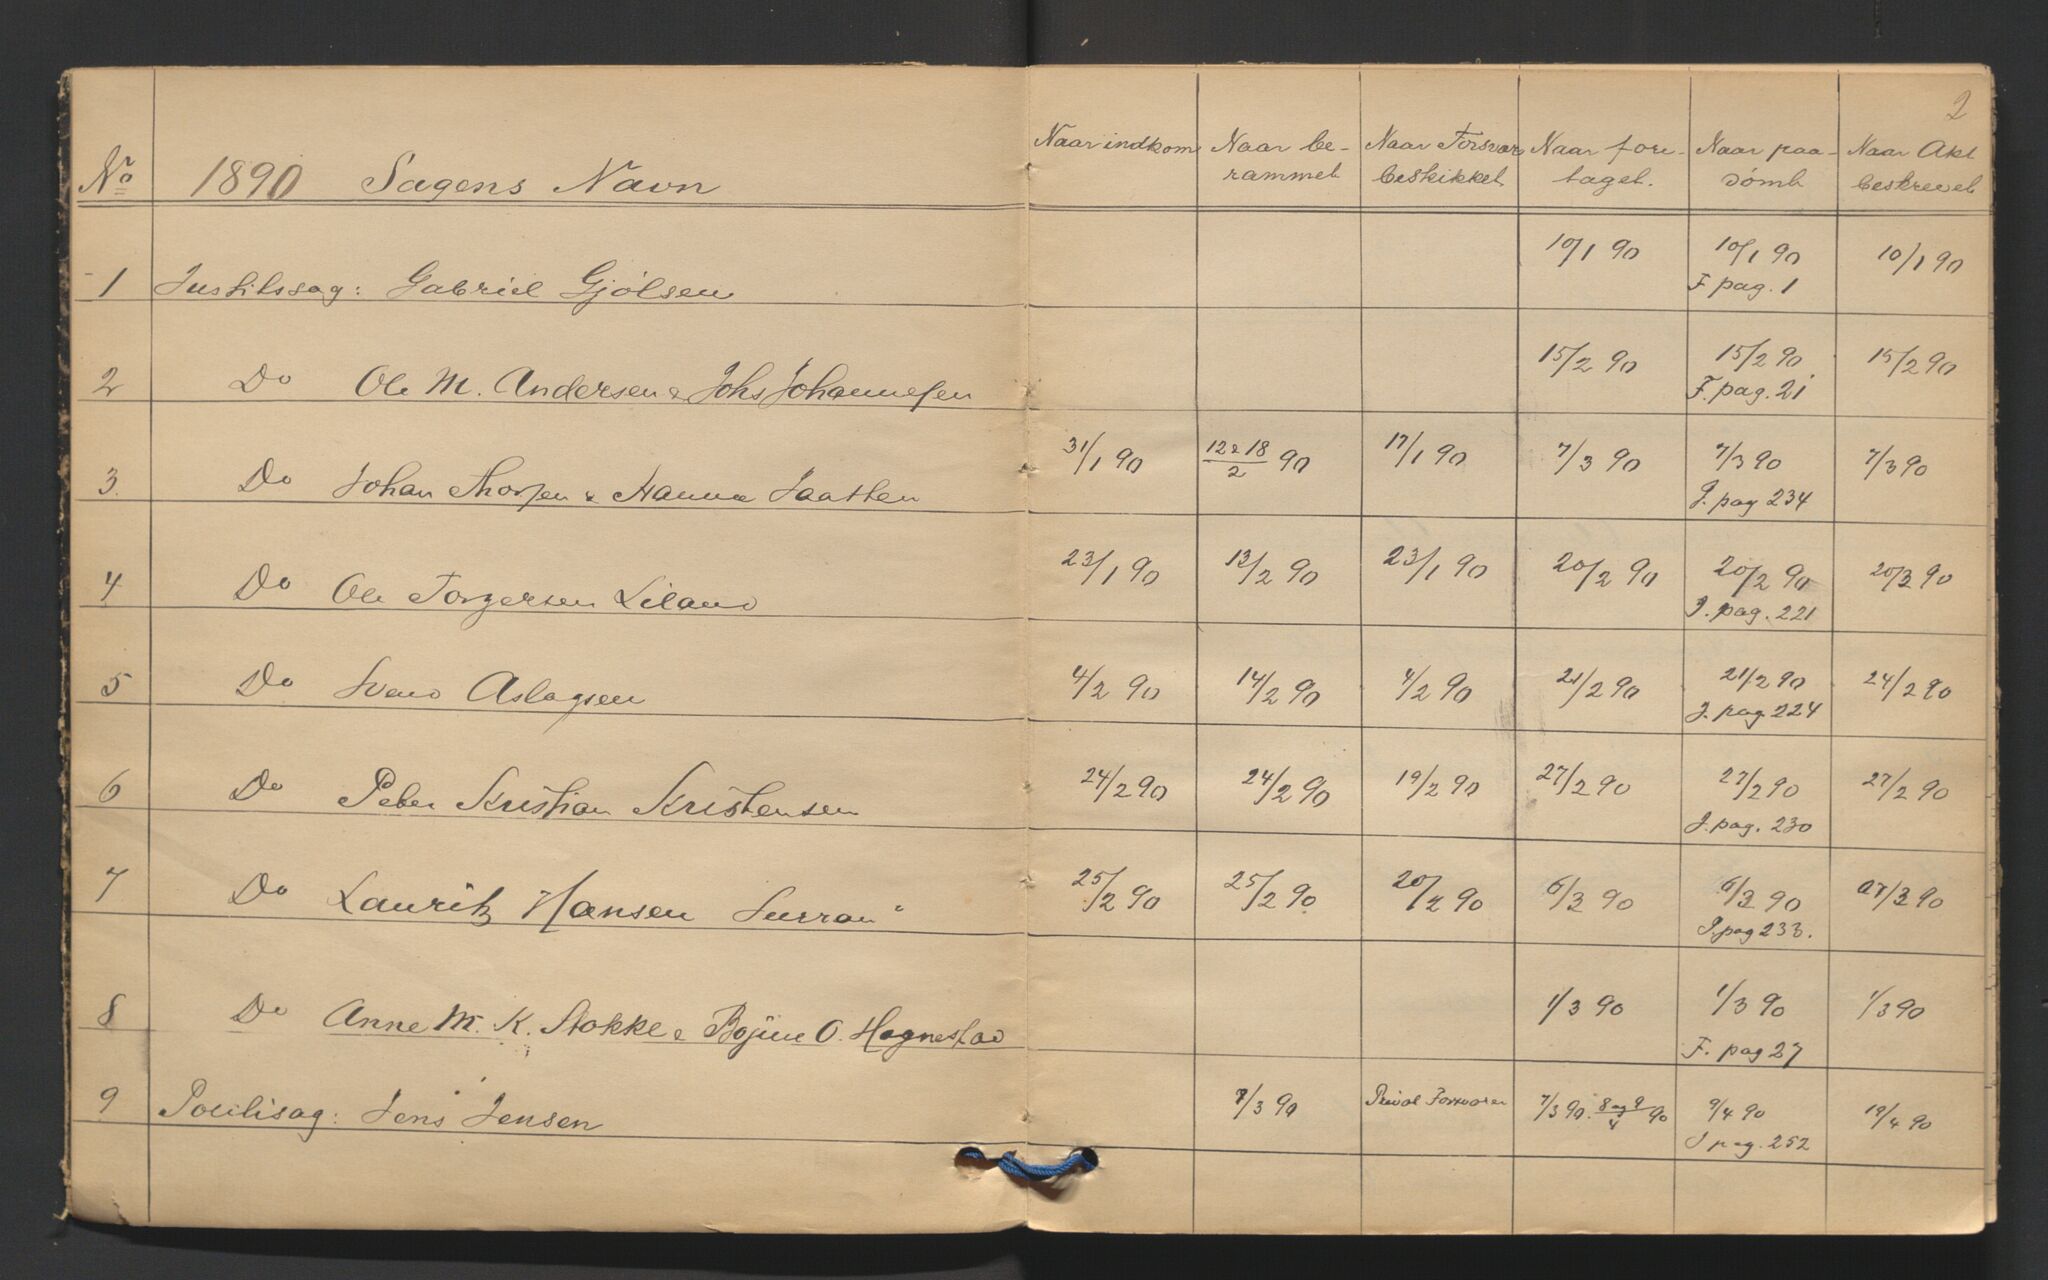 2
No 1890 Sagens Navn Naar indkom Naar be-rammet Naar Forsvar beskikket Naar fore-taget. Naar paa-dömt Naar Akt beskrevet
1 Justitssag: Gabriel Gjölsen 10/1 90 10/1 90 F pag. 1 10/1 90
2 Do Ole M. Andersen & Johs Johannesen 15/2 90 15/2 90 F. pag. 21 15/2 90
3 Do Johan Thorsen & Hanna Jaatten 31/1 90 12 & 18/2 90 17/1 90 7/3 90 7/3 90 J. pag 234 7/3 90
4 Do Ole Torgersen Liland 23/1 90 13/2 90 23/1 90 20/2 90 20/2 90 J. pag. 221 20/3 90
5 Do Svend Aslagsen 4/2 90 14/2 90 4/2 90 21/2 90 21/2 90 J. pag 224 24/2 90
6 Do Peter Kristian Kristensen 24/2 90 24/2 90 19/2 90 27/2 90 27/2 90 J. pag. 230 27/2 90
7 Do Lauritz Hansen 25/2 90 25/2 90 20/2 90 6/3 90 6/3 90 J. pag 233. 27/3 90
8 Do Anne M. K. Stokke & O. Hognestad 1/3 90 1/3 90 F. pag 27 1/3 90
9 Politisag: Jens Jensen 7/3 90 Privat Forsvarer 7/3 90. 8 og 9/4 90 9/4 90 J pag. 252 19/4 90